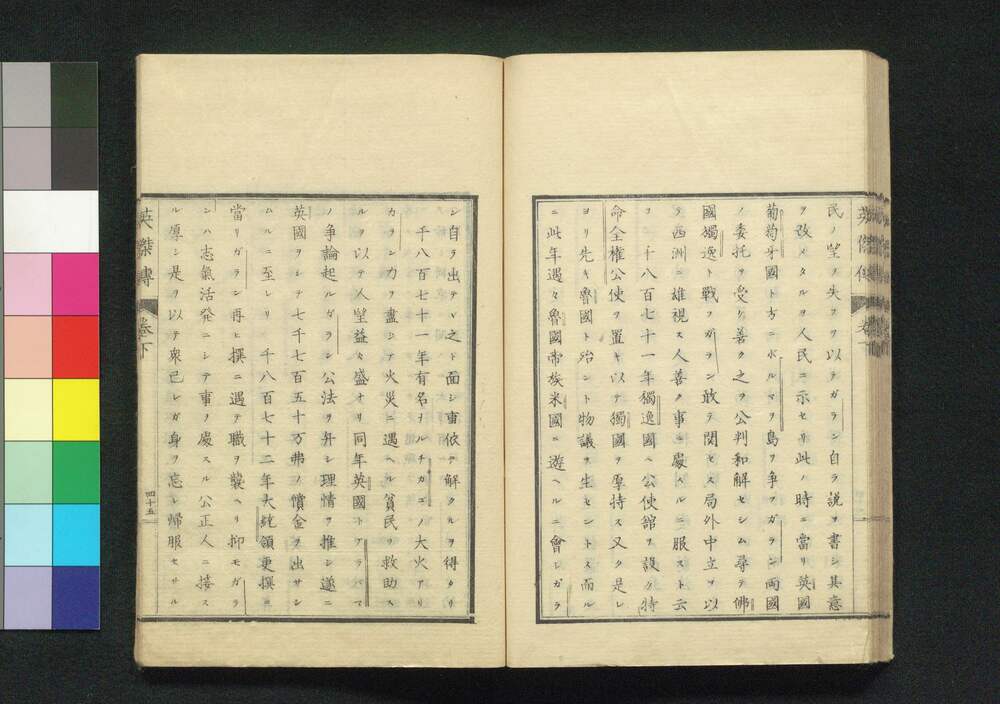 民ノ望ノ失フヲ以テガラン自ラ説ヲ書シ其意
ヲ改メタルヲ人民ニ示セリ此ノ時ニ當リ英國
葡萄牙國ト方ニボルマヲ島ヲ爭フガラン両國
ノ委托ヲ受ク善ク之ヲ公判和解セシム尋テ佛
國獨逸ト戰フガラン敢テ関セス局外中立ヲ以
ラ西洲ニ雄視ス人善ク事ニ處スルニ服スト云
フ 千八百七十一年獨逸國ヘ公使舘ヲ設ク特
命全權公使ヲ置キ以テ獨國ヲ厚待ス又タ是レ
ヨリ先キ魯國ト殆ント物議ヲ生セントス而ル
ニ此年遇々魯國帝族米國ニ遊ヘルニ會シガラ
シ自ラ出テヽ之ト面シ事依テ解クルヲ得タリ
千八百七十一年有名ヲルチカゴノ大火アリ
カラン力ヲ盡シテ火災ニ遇ヘル貧民ヲ救助ス
ルヲ以テ人望益々盛ナリ同年英國トアラバマ
ノ争論起ルガラン公法ヲ弁シ理情ヲ推シ遂ニ
英國ヲシテ七千七百五十万弗ノ償金ヲ出サシ
ムルニ至レリ 千八百七十二年大統領更撰ニ
當リガラン再ヒ撰ニ遇テ職ヲ襲ヘリ抑モガラ
シハ志氣活発ニシテ事ヲ處スル公正人ニ接ス
ル厚シ是ヲ以テ衆己レガ身ヲ忘レ帰服セサル
英傑傳 卷下
四十五